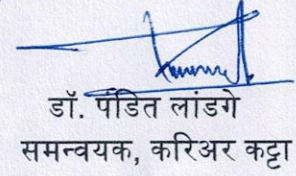 डॉ. पंडित लांडगे
समन्वयक, करिअर कट्टा